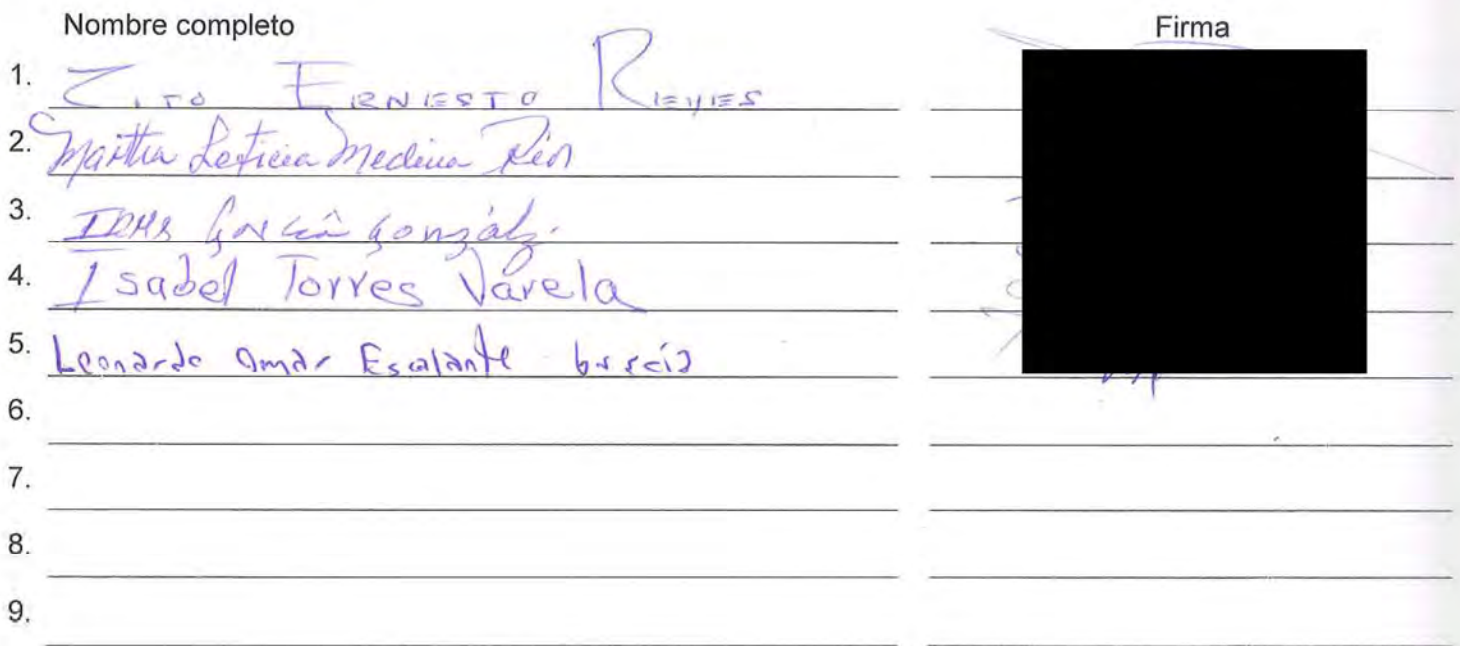 Nombre completo Firma
1. Zito Ernesto Reyes
2. Martha Leticia Medina
3. Irma García González
4. Isabel Torres Varela
5. Leonardo Omar Escalante
6.
7.
8.
9.